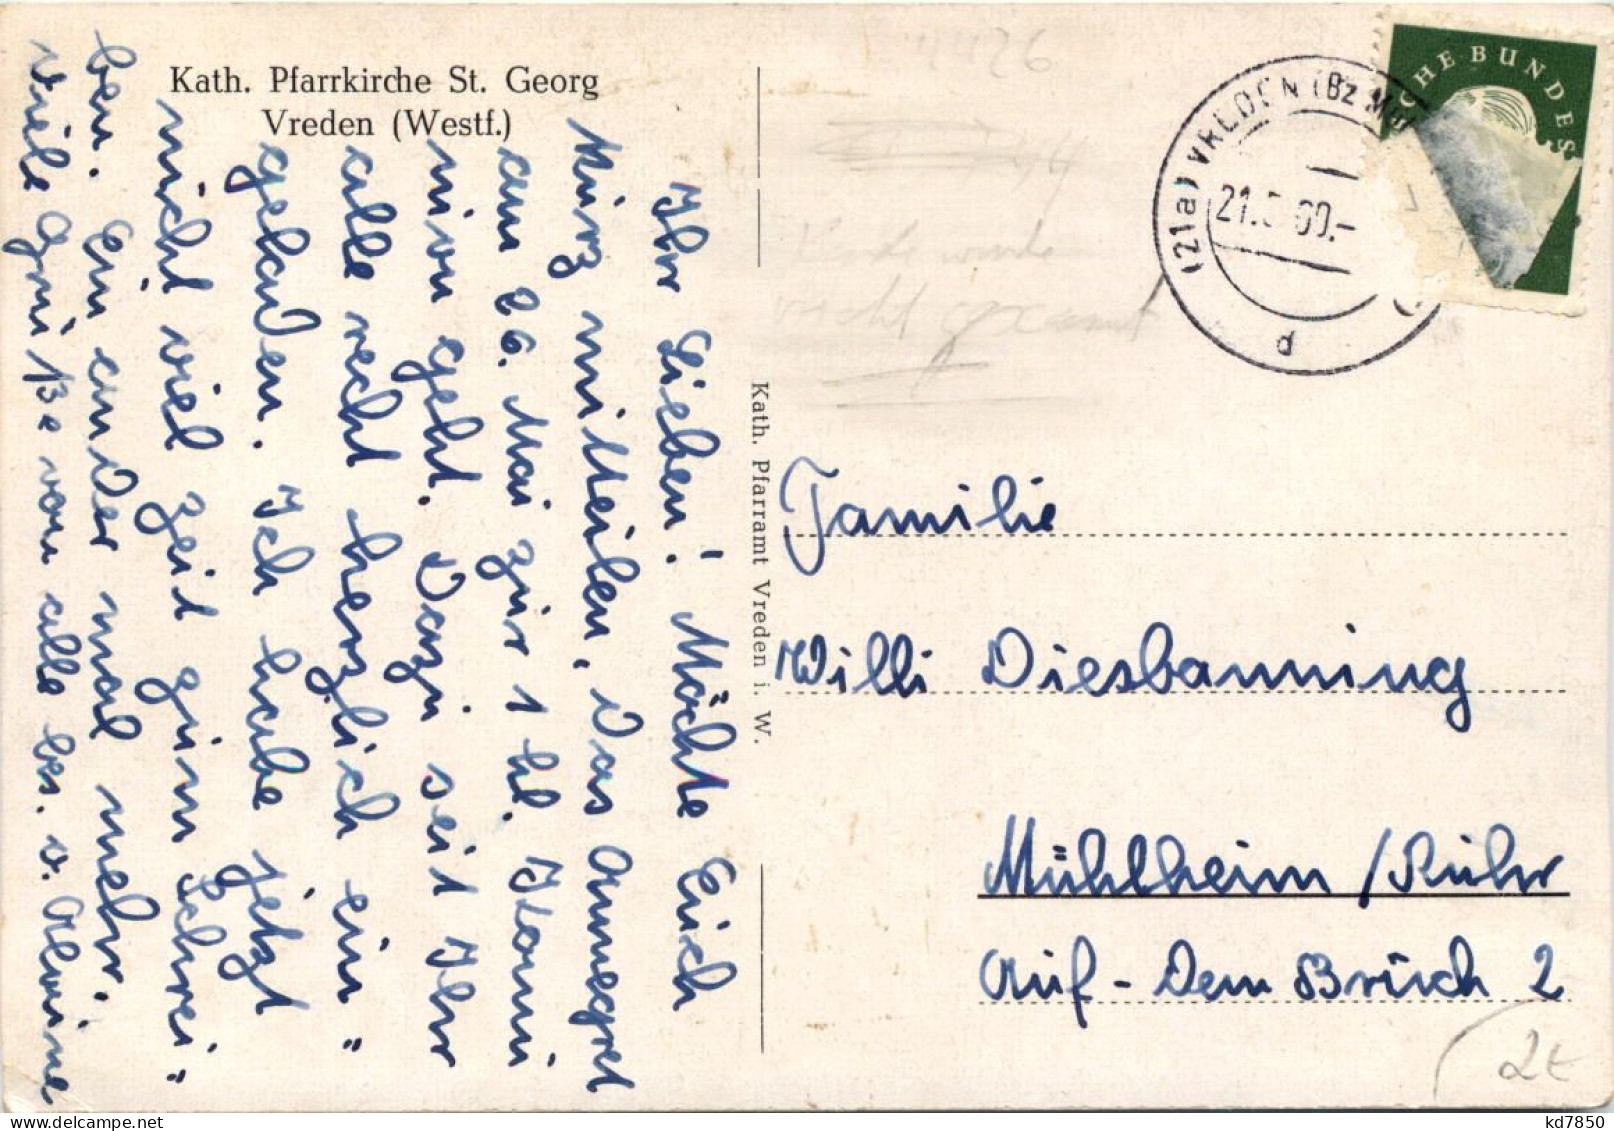 Kath. Pfarrkirche St. Georg
Vreden (Westf.)
Ihr Lieben! Möchte Euch
kurz mitteilen, das Annegret
am 26. Mai zur 1 hl. Komm
nion geht. Dazu seit Ihr
alle recht herzlich ein"
geladen. Ich habe jetzt
nicht viel zeit zum Schrei"
ben. Ein ander mal mehr.
Viele Grüße von alle bes. v. Alwine
Kath. Pfarramt Vreden i. W.
CHE BUNDES
(21a) VREDEN (Bz
21. 60.-
d
Familie
Willi Diesbanning
Mühlheim/Ruhr
Auf-Dem Bruch 2
2€
kd7850